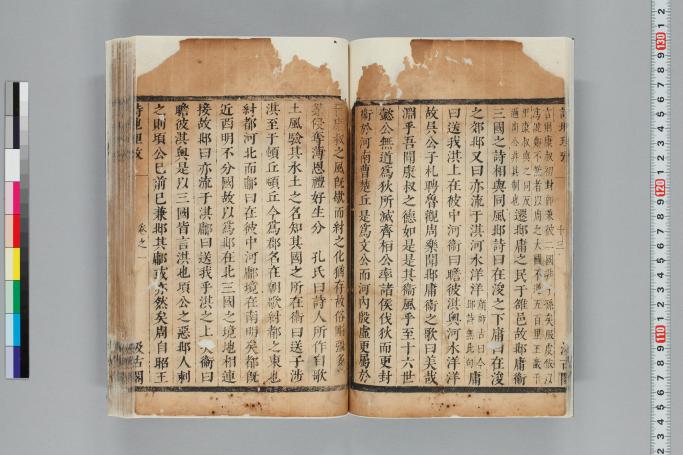 言則康叔初封即兼彼二國非
遷邶庸之民于雒邑故邶庸衛
三國之詩相與同風邶詩曰在浚之下庸曰在浚
之郊邶又曰亦流于淇河水洋洋
庸
曰送我淇上在彼中河衛曰瞻彼淇奧河水洋洋
故吳公子札聘魯觀周樂聞邶庸衛之歌曰美哉
淵乎吾聞康叔之德如是是其衛風乎至十六世
懿公無道爲狄所滅齊桓公率諸侯伐狄而更封
衛於河南曹楚丘是爲文公而河內殷虛更屬於
康叔之風旣歇而紂之化猶存故俗剛彊多
侵奪薄恩禮好生分 孔氏曰詩人所作自歌
土風驗其水土之名知其國之所在衛曰送子涉
淇至于頓丘頓丘今爲郡名在朝歌紂都之東也
紂都河北而鄘曰在彼中河鄘境在南明矣都旣
近西明不分國故以爲邶在北三國之境地相連
接故邶曰亦流于淇鄘曰送我乎淇之上矣衛曰
瞻彼淇奧是以三國皆言淇也頃公之惡邶人刺
之則頃公已前已兼邶其鄘或亦然矣周自昭王
詩地理攷
卷之一
汲古閣